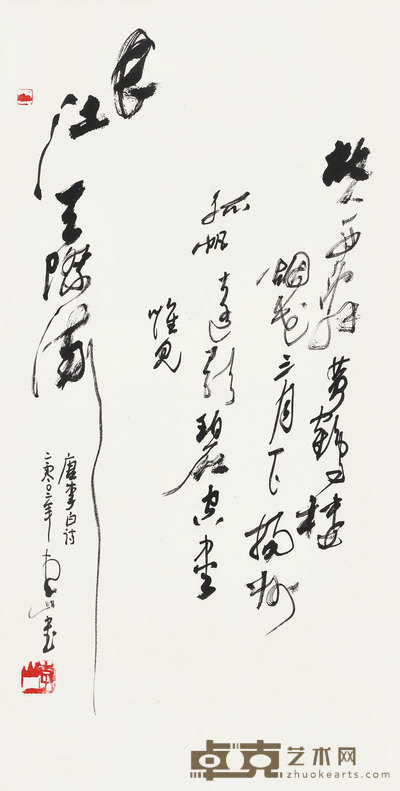 故人西辞黄鹤楼
烟花三月下扬州
孤帆远影碧空尽
惟见
长江天际流
唐李白诗
卓克艺术网
zhuokearts.com